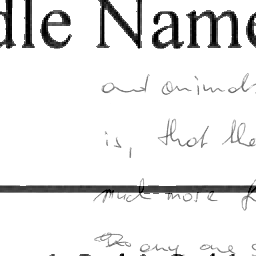 dle Name
and animals
is, that the
much more
any one